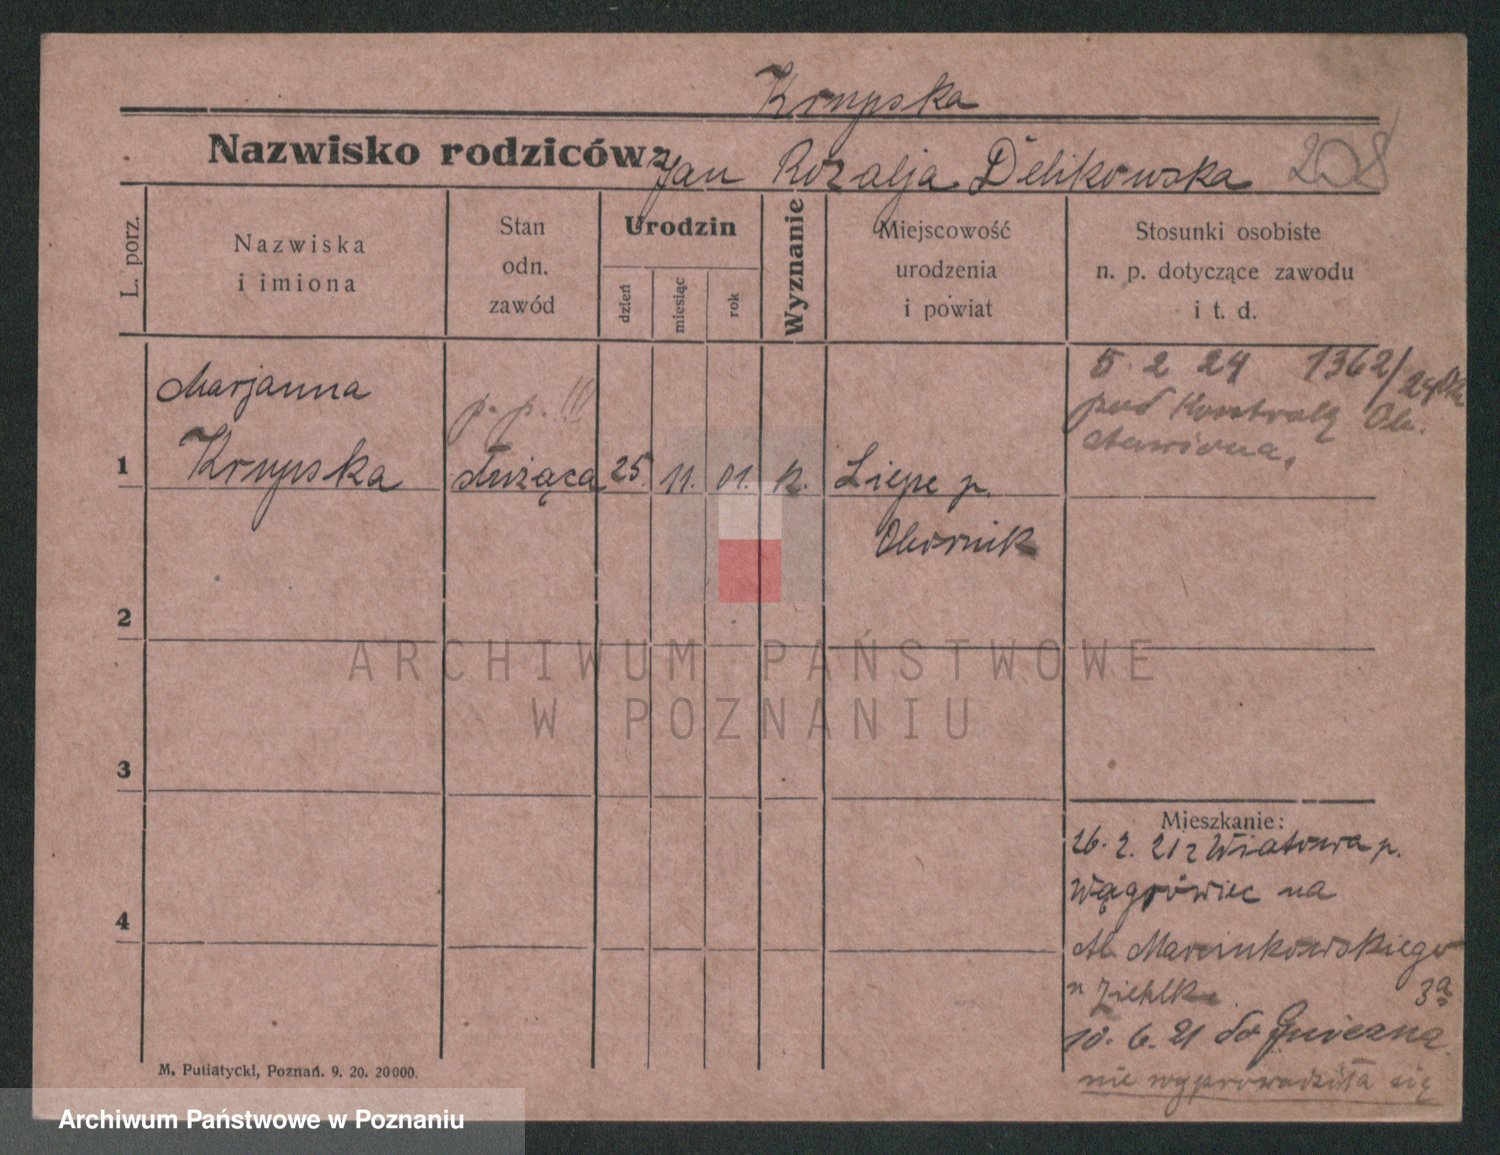 Krupska
Nazwisko rodziców: Jan Rozalja Delikowska 208
L. porz.
Nazwiska
i imiona
Stan
odn.
zawód
Urodzin
dzień
miesiąc
rok
Wyznanie
Miejscowość
urodzenia
i powiat
Stosunki osobiste
n. p. dotyczące zawodu
i t. d.
Marjanna
5. 2 24 1362/24
p. p. !!!
pod Kontrolą Ob.
stawiona.
1 Krupska służąca 25. 11. 01. k. Liepe p.
Obornik
2
ARCHIWUM PAŃSTWOWE
W POZNANIU
3
Mieszkanie:
26. 2. 21 z Wiatowa p.
Wągrówiec na
4
Al. Marcinkowskiego
u 3a
10. 6. 21 do Gniezna
nie wyprowadziła się
M. Putiatycki, Poznań. 9. 20. 20000.
Archiwum Państwowe w Poznaniu